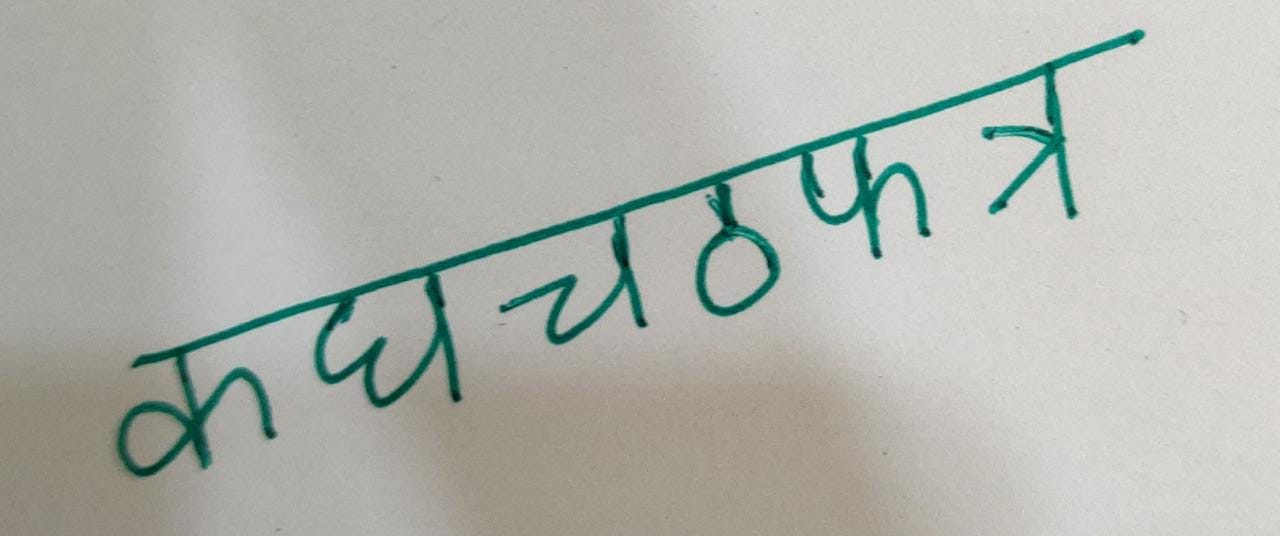 कघचठफत्र